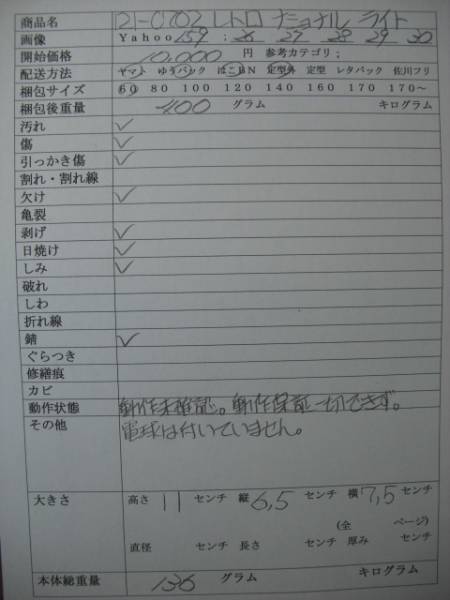 商品名 21-0702 レトロ ナショナル ライト
画像 Yahoo 159 : 26 27 28 29 30
開始価格 10,000 円 参考カテゴリ;
配送方法 ヤマト ゆうパック はこBN 定型外 定型 レタパック 佐川フリ
梱包サイズ 60 80 100 120 140 160 170 170～
梱包後重量 400 グラム キログラム
汚れ ✓
傷 ✓
引っかき傷 ✓
割れ・割れ線
欠け ✓
亀裂
剥げ ✓
日焼け ✓
しみ ✓
破れ
しわ
折れ線
錆 ✓
ぐらつき
修繕痕
カビ
動作状態 動作未確認。動作保証一切できず。
その他 電球は付いていません。
大きさ 高さ 11 センチ 縦 6,5 センチ 横 7,5 センチ
(全 ページ)
直径 センチ 長さ センチ 厚み センチ
本体総重量 136 グラム キログラム